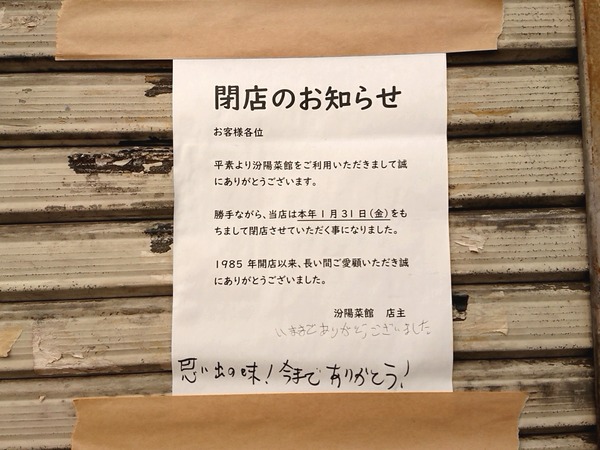 閉店のお知らせ
お客様各位
平素より汾陽菜館をご利用いただきまして誠
にありがとうございます。
勝手ながら、当店は本年1月31日(金)をも
ちまして閉店させていただく事になりました。
1985 年開店以来、長い間ご愛顧いただき誠
にありがとうございました。
汾陽菜館 店主
いままでありがとうございました
思い出の味!今までありがとう!